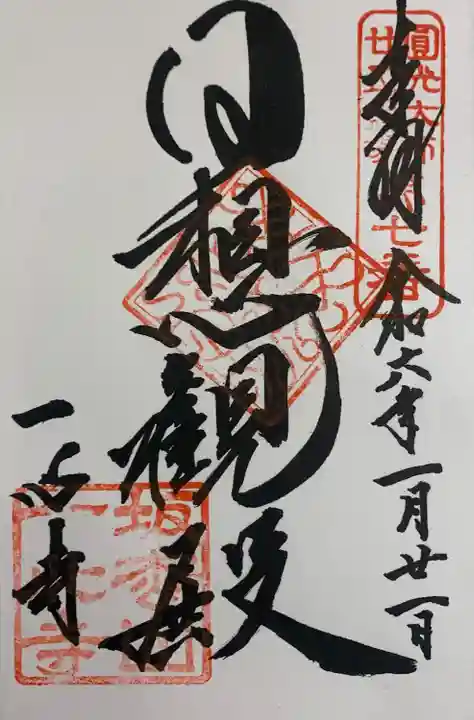 奉拝
令和六年一月廿一日
圓光大師
廿五霊場第七番
日想観殿
一心寺
坂松山
一心寺